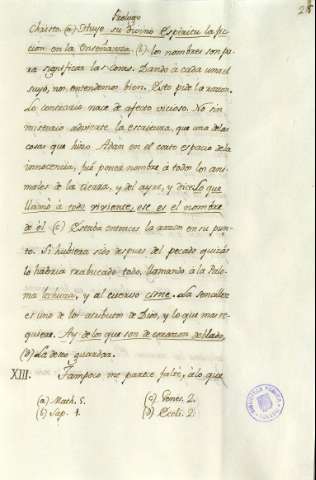 Prologo
Christo. (a) Huye su Divino Espiritu la fic
cion en la enseñanza. (b) los nombres son pa
ra significar las cosas. Dando à cada una el
suyo, nos entendemos bien. Esto pide la razon.
Lo contrario nace de afecto vicioso. No sin
misterio advierte la escritura, que una de las
cosas que hizo Adan en el corto espacio de la
innocencia, fué poner nombre à todos los ani
males de la tierra, y del ayre, y dice: lo que
llamò à todo viviente, ese es el nombre
de èl. (c) Estaba entonces la razon en su pun
to. Si hubiera sido despues del pecado quizás
lo habria trabucado todo, llamando à la Palo
ma lechuza, y al cuervo cisne. La sencillez
es uno de los atributos de Dios, y lo que mas re
quiere. Ay de los que son de corazon doblado,
(d)
XIII. Tampoco me parece falte, à lo que
(a) Math. 5. (c) Genes. 2.
(b) Sap. 1. (d) Ecoli. 2.